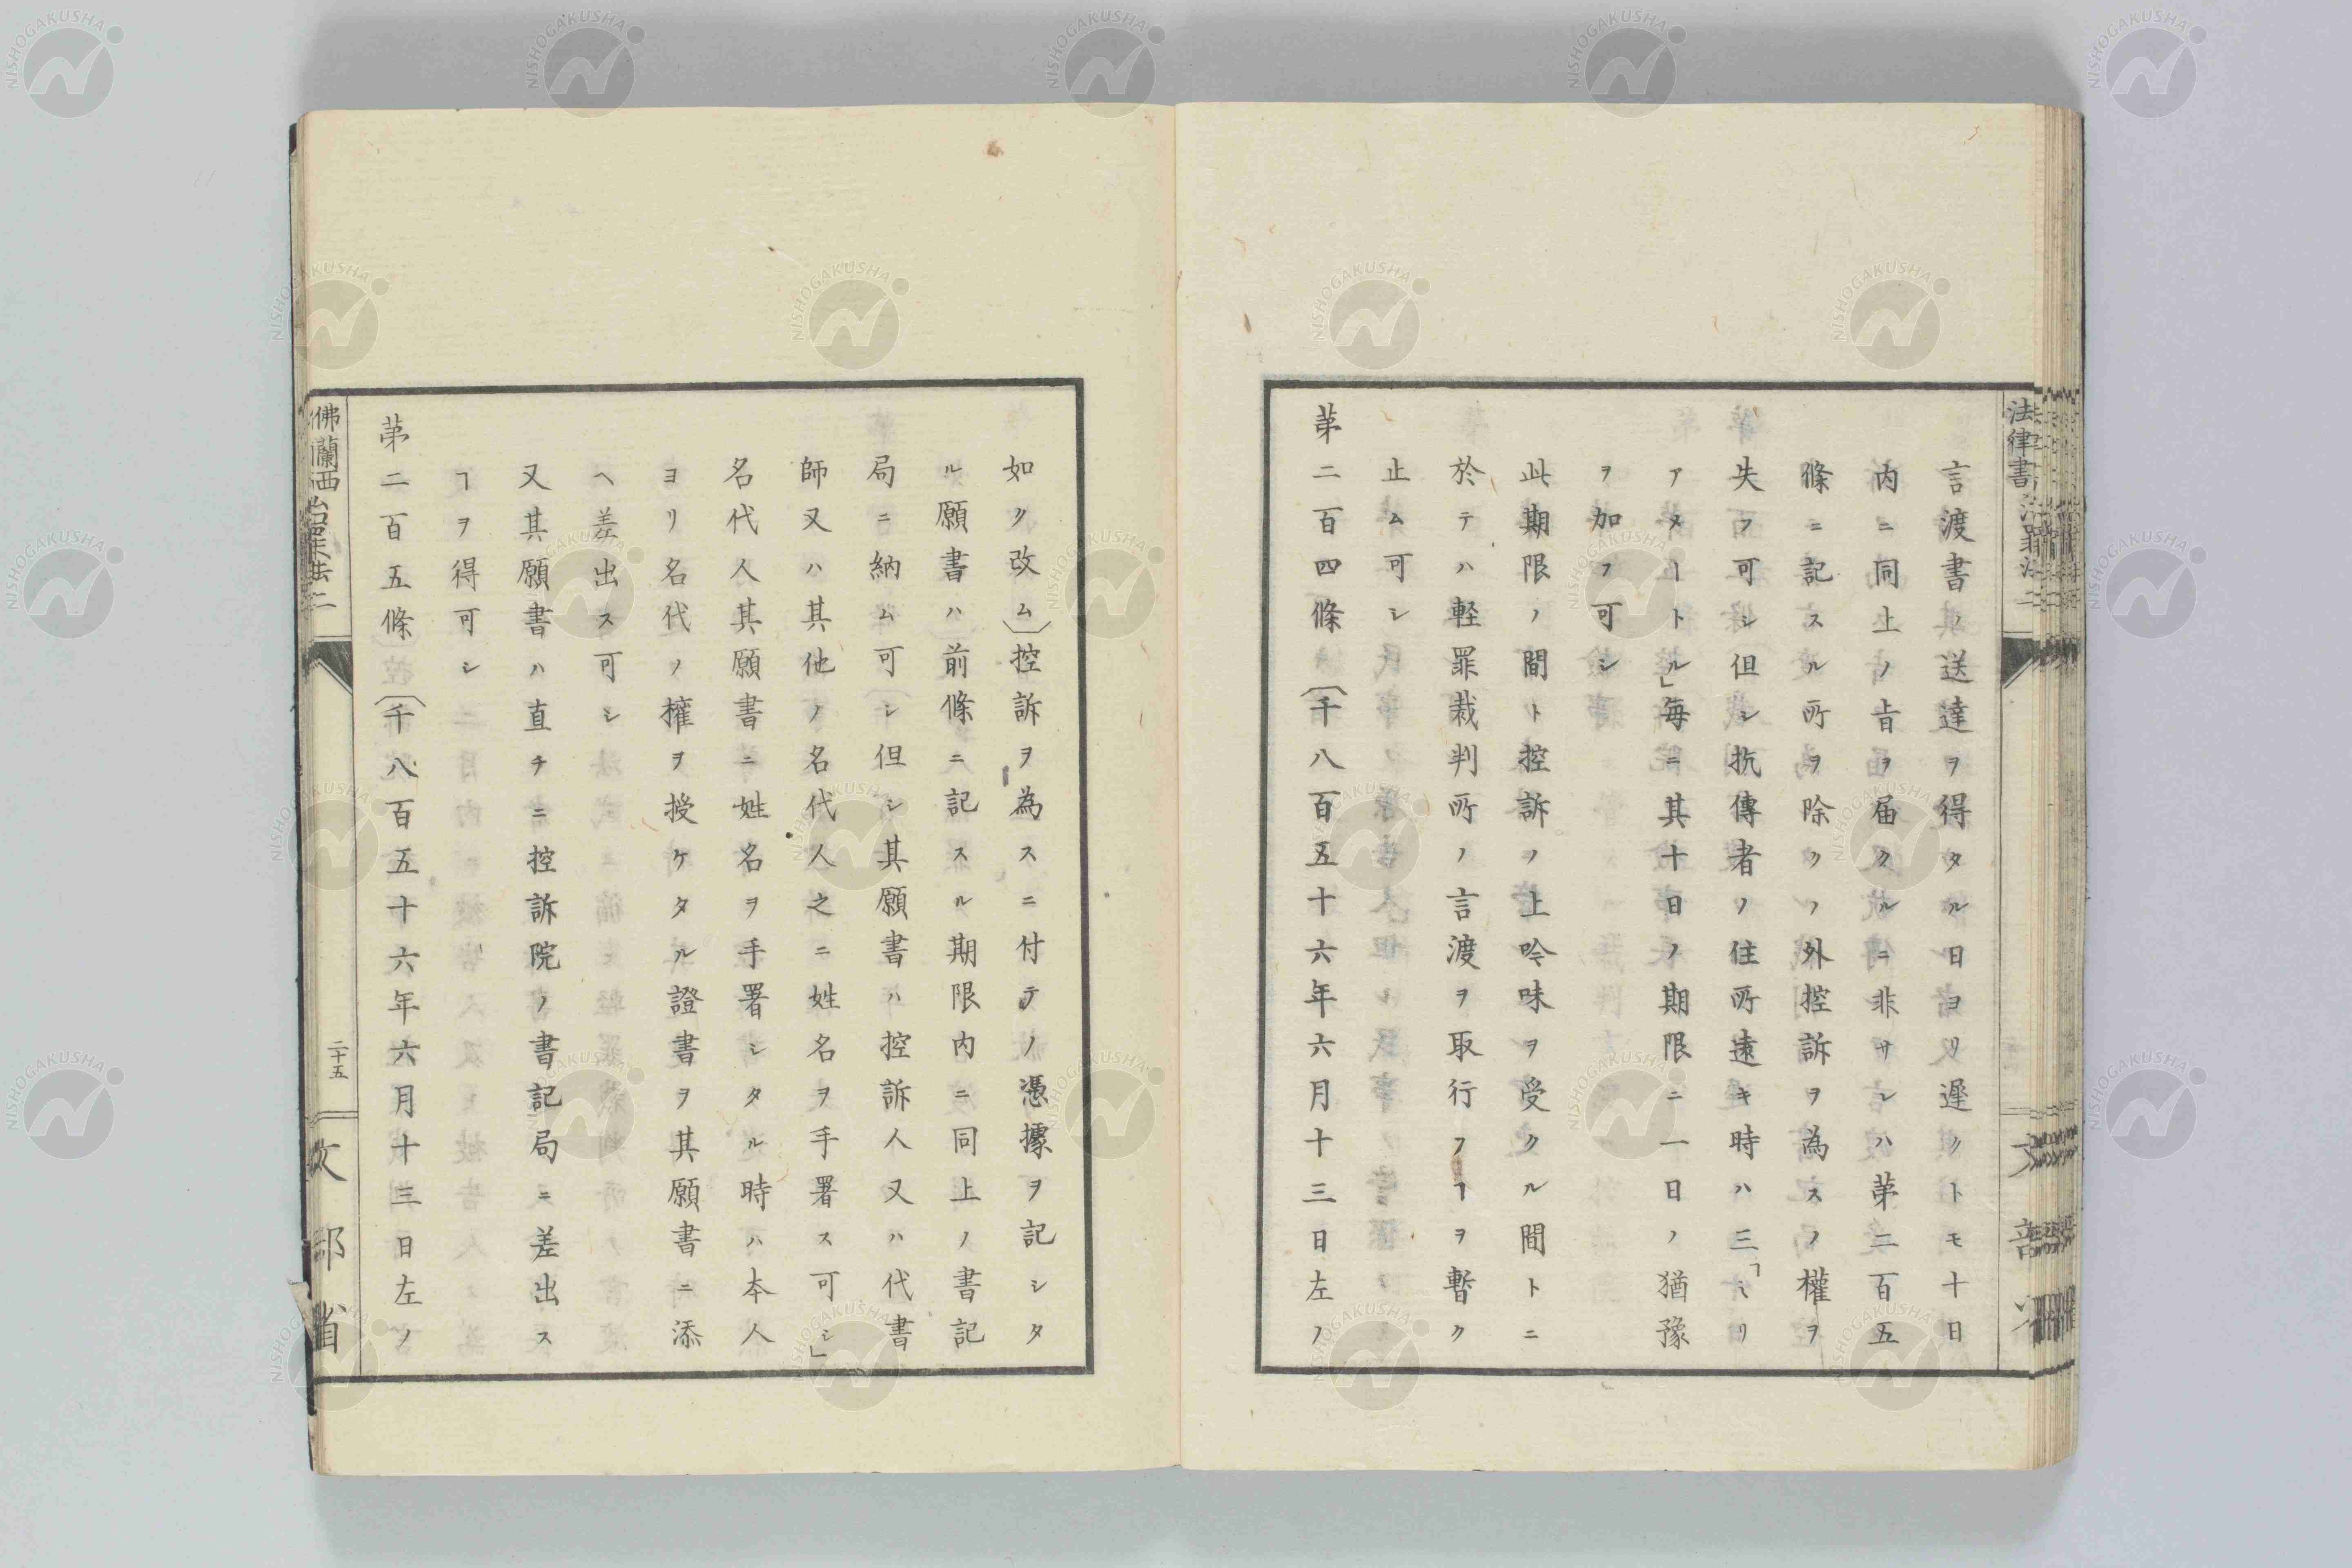 言渡書ノ送達ヲ得タル日ヨリ遲クトモ十日
内ニ同上ノ旨ヲ届クルニ非サレハ第二百五
條ニ記スル所ヲ除クノ外控訴ヲ為スノ權ヲ
失フ可シ但シ抗傳者ノ住所遠キ時ハ三「ミリ
アメートル」每ニ其十日ノ期限ニ一日ノ猶豫
ヲ加フ可シ
此期限ノ間ト控訴ノ上吟味ヲ受クル間トニ
於テハ軽罪裁判所ノ言渡ヲ取行フヿヲ暫ク
止ム可シ
第二百四條(千八百五十六年六月十三日左ノ
如ク改ム)控訴ヲ為スニ付テノ憑據ヲ記シタ
ル願書ハ前條ニ記スル期限内ニ同上ノ書記
局ニ納ム可シ但シ其願書ハ控訴人又ハ代書
師又ハ其他ノ名代人之ニ姓名ヲ手署ス可シ」
名代人其願書ニ姓名ヲ手署シタル時ハ本人
ヨリ名代ノ權ヲ授ケタル證書ヲ其願書ニ添
ヘ差出ス可シ
又其願書ハ直チニ控訴院ノ書記局ニ差出ス
ヿヲ得可シ
第二百五條(千八百五十六年六月十三日左ノ
佛蘭西治罪法二
二十五
文部省
NISHOGAKUSHA